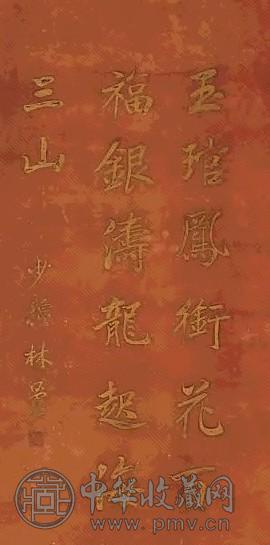 玉琯鳳銜花百
福銀濤龍起海
三山
少穆林
中华收藏网
www.pmv.cn